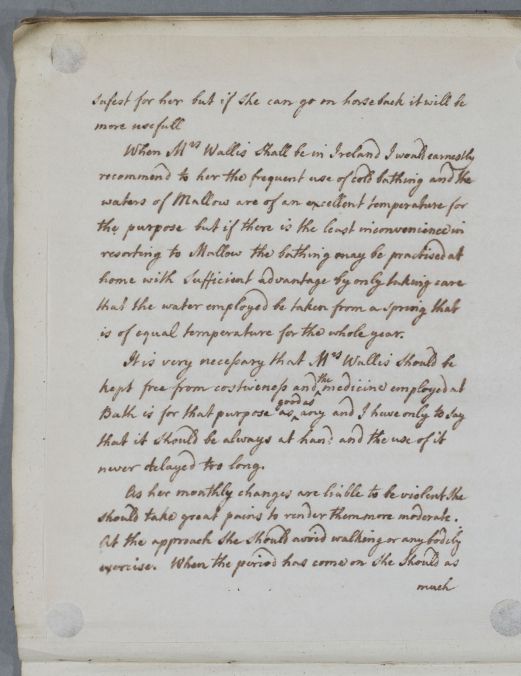 safest for her but if She can go on horseback it will be
more usefull
When Mrs Wallis Shall be in Ireland I would earnestly
recommend to her the frequent use of cold bathing and the
waters of Mallow are of an excellent temperature for
the purpose but if there is the least inconvenience in
resorting to Mallow the bathing may be practised at
home with Sufficient advantage by only taking care
that the water employed be taken from a Spring that
is of equal temperature for the whole year.
It is very necessary that Mrs Wallis Should be
kept free from costiveness and the medicine employed at
Bath is for that purpose as good as any and I have only to Say
that it Should be always at hand and the use of it
never delayed too long.
As her monthly changes are liable to be violent She
Should take great pains to render them more moderate.
At the approach She Should avoid walking or any bodily
exercise. When the period has come on She Should as
much